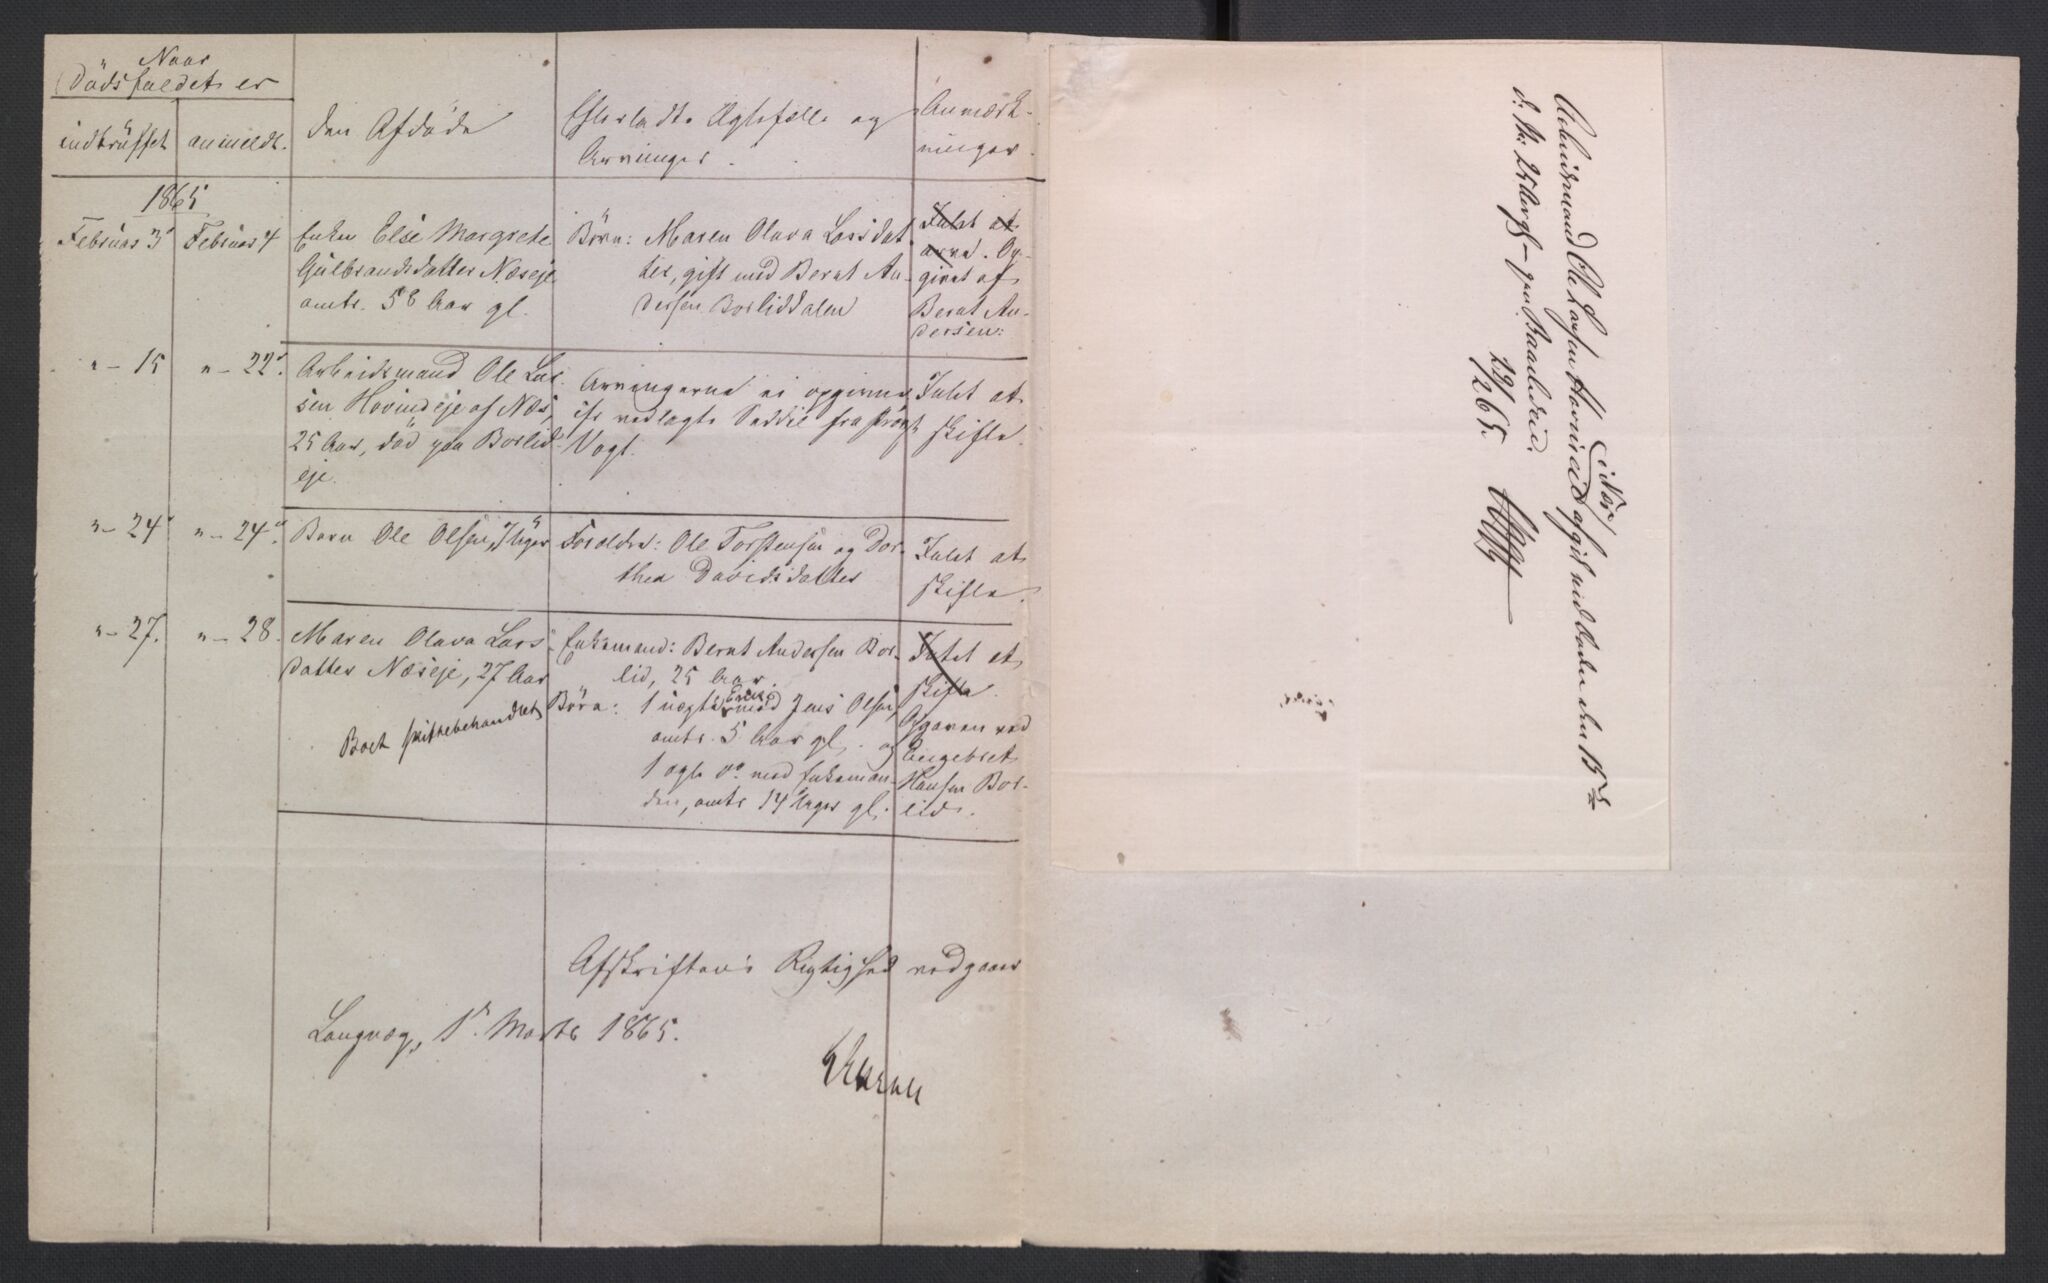 Naar
Dödsfaldet er
indtruffet
anmeldt.
den Afdöde
Efterladte Ægtefælle og
Arvinger.
Anmærk-
ninger.
1865
Februar 3
Februar 4
Enke Else Margrete
Gulbrandsdatter Næseje
omtr. 58 Aar gl.
Börn: Maren Olava Larsdat-
ter, gift med Bernt An-
dersen Borliddalen
Intet at
arve. Op-
givet af
Bernt An-
dersen.
"- 15
"- 22.
Arbeidsmand Ole Lar-
sen Hovindeje af Næs,
25 Aar, död paa Borlid-
eje.
Arvingerne ei opgivne
cfr vedlagte Seddel fra
Vogt.
Intet at
skifte.
"- 24
"- 24.
Barn Ole Olsen, Uger
Foreldre: Ole Torstensen og Dor-
thea Davidsdatter
Intet at
skifte.
"- 27.
"- 28.
Maren Olava Lars-
datter Næseje, 27 Aar
Boet skiftebehandlet
Enkemand: Bernt Andersen Bor-
lid, 25 Aar.
Börn: 1 uægte med Jens Olsen,
omtr. 5 Aar gl. og
1 ægte do med Enkeman-
den, omtr 14 Uger gl.
Intet at
skifte.
Opgaven ved
Engebret
Hansen Bor-
lid.
Afskriftens Rigtighed vedgaaes
Langvæg, 1ste Marts 1865.
Arbeidsmand Ole Larsen Hovindeid afgik ved døden den 15de
d. M. 25 Aar gl - paa Baaslideid.
22/2 65.